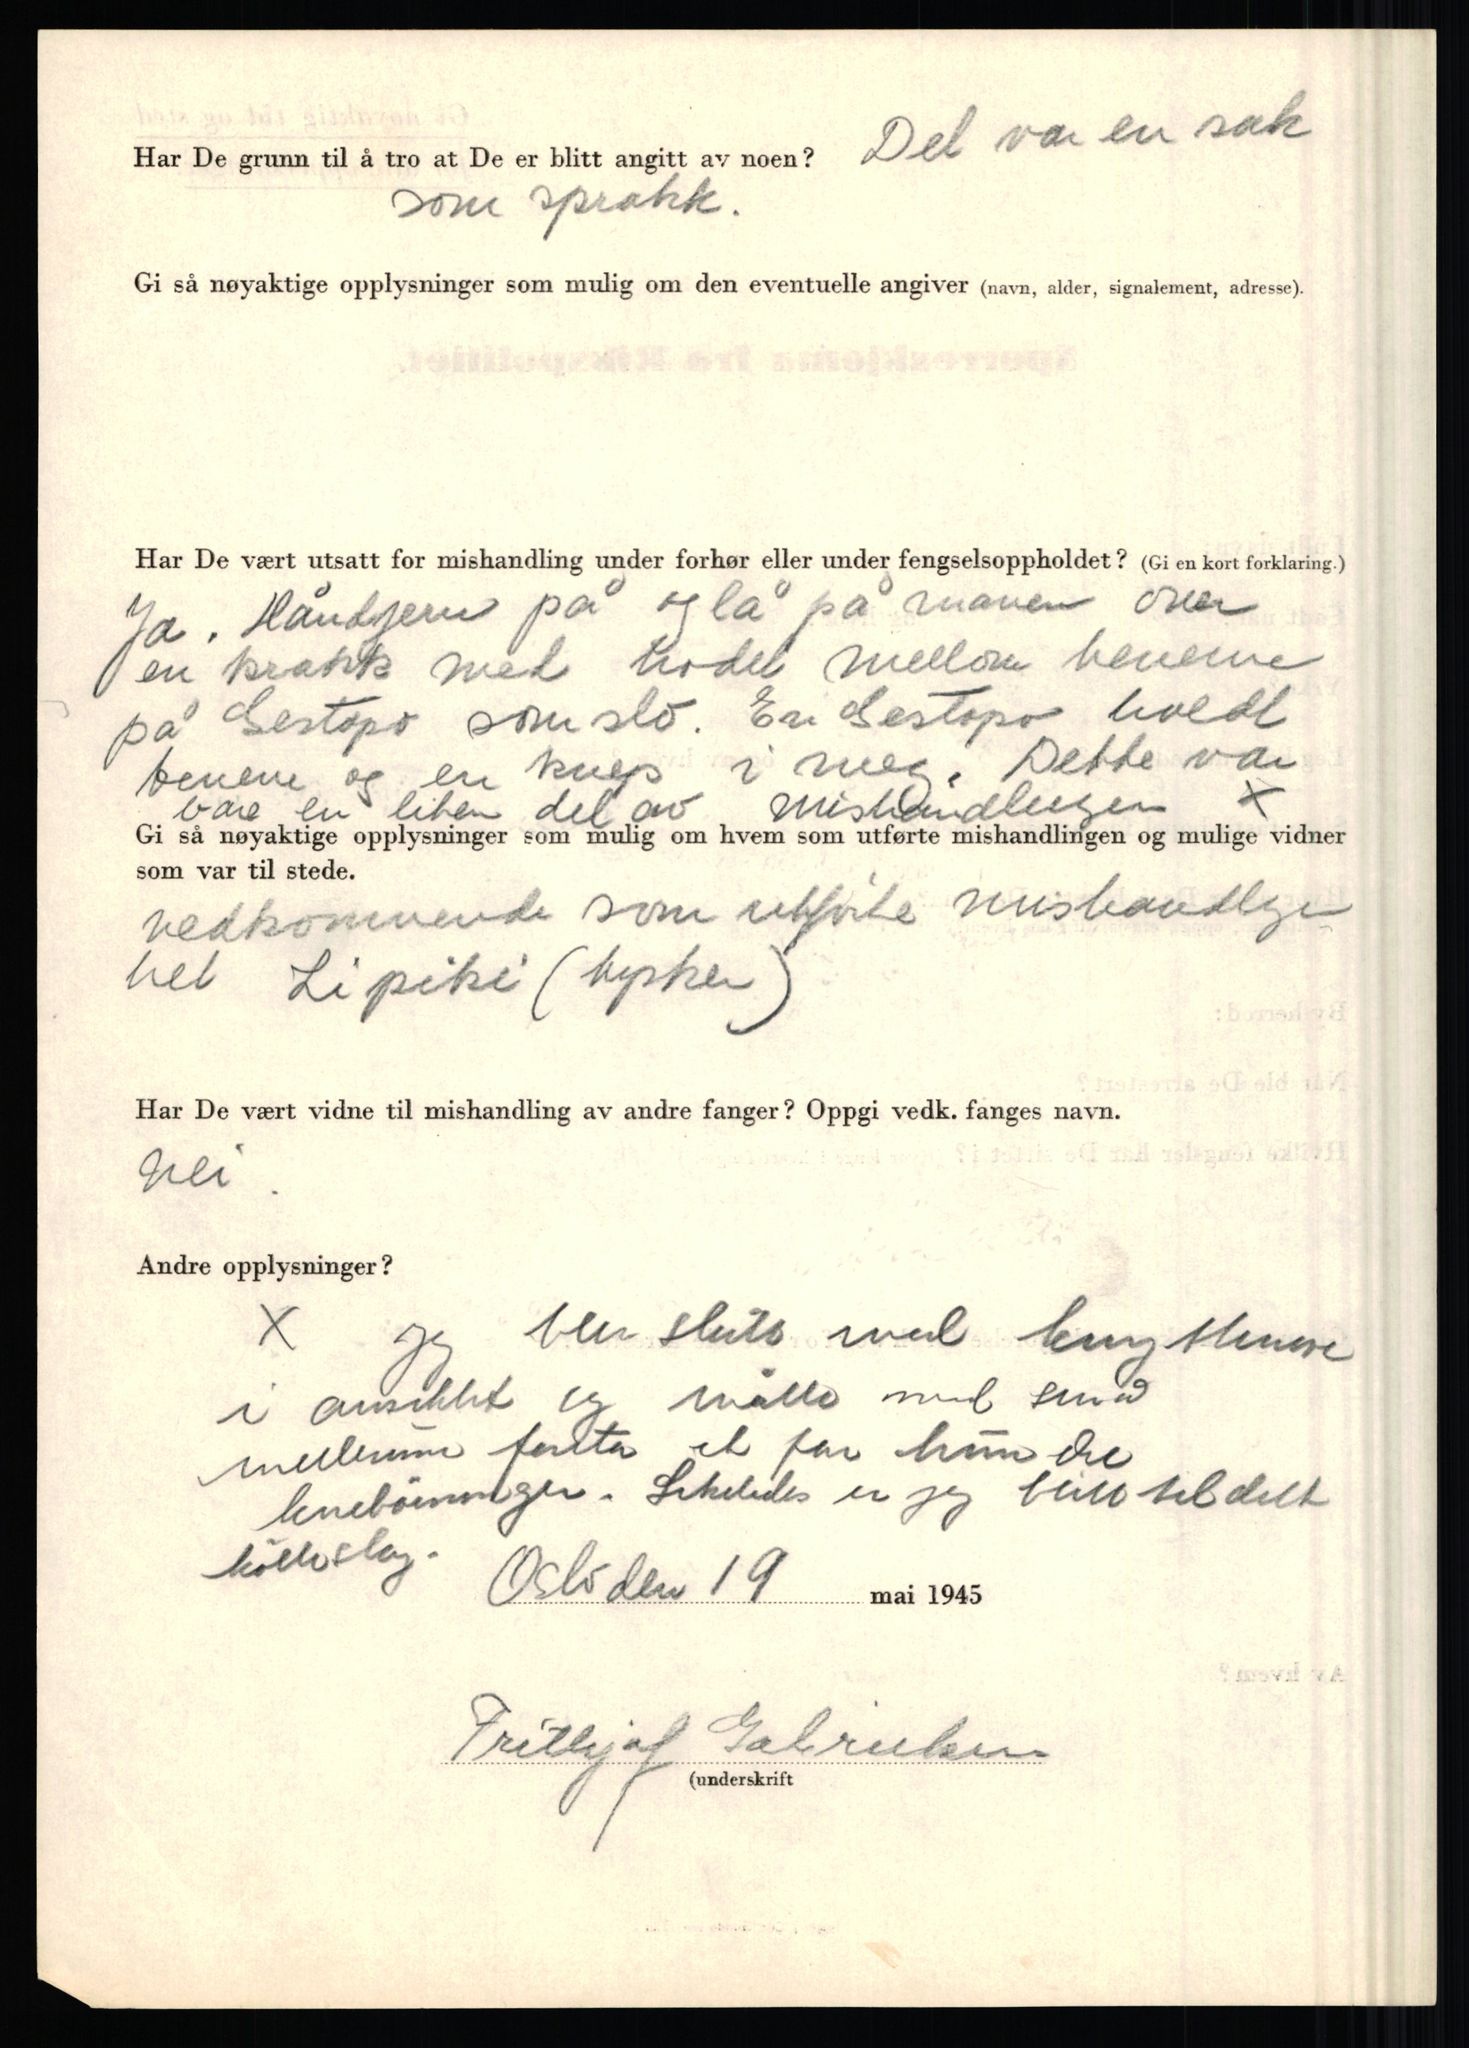 Har De grunn til å tro at De er blitt angitt av noen? Det var en sak
som sprakk.
Gi så nøyaktige opplysninger som mulig om den eventuelle angiver (navn, alder, signalement, adresse).
Har De vært utsatt for mishandling under forhør eller under fengselsoppholdet? (Gi en kort forklaring.)
Ja. Håndjern på og lå på maven over
en krakk med hodet mellom benene
på Gestapo som slo. En Gestapo holdt
benene og en knep i meg. Dette var
bare en liten del av mishandlingen X
Gi så nøyaktige opplysninger som mulig om hvem som utførte mishandlingen og mulige vidner
som var til stede.
vedkommende som utførte mishandlingen
het Lipiki (tysker)
Har De vært vidne til mishandling av andre fanger? Oppgi vedk. fanges navn.
Nei.
Andre opplysninger?
X jeg blev slått med knyttneve
i ansiktet og måtte med små
mellerum foreta et par hundre
knebøininger. Likeledes er jeg blitt tildelt
kølleslag.
Oslo den 19 mai 1945
Frithjof Gabrielsen
(underskrift